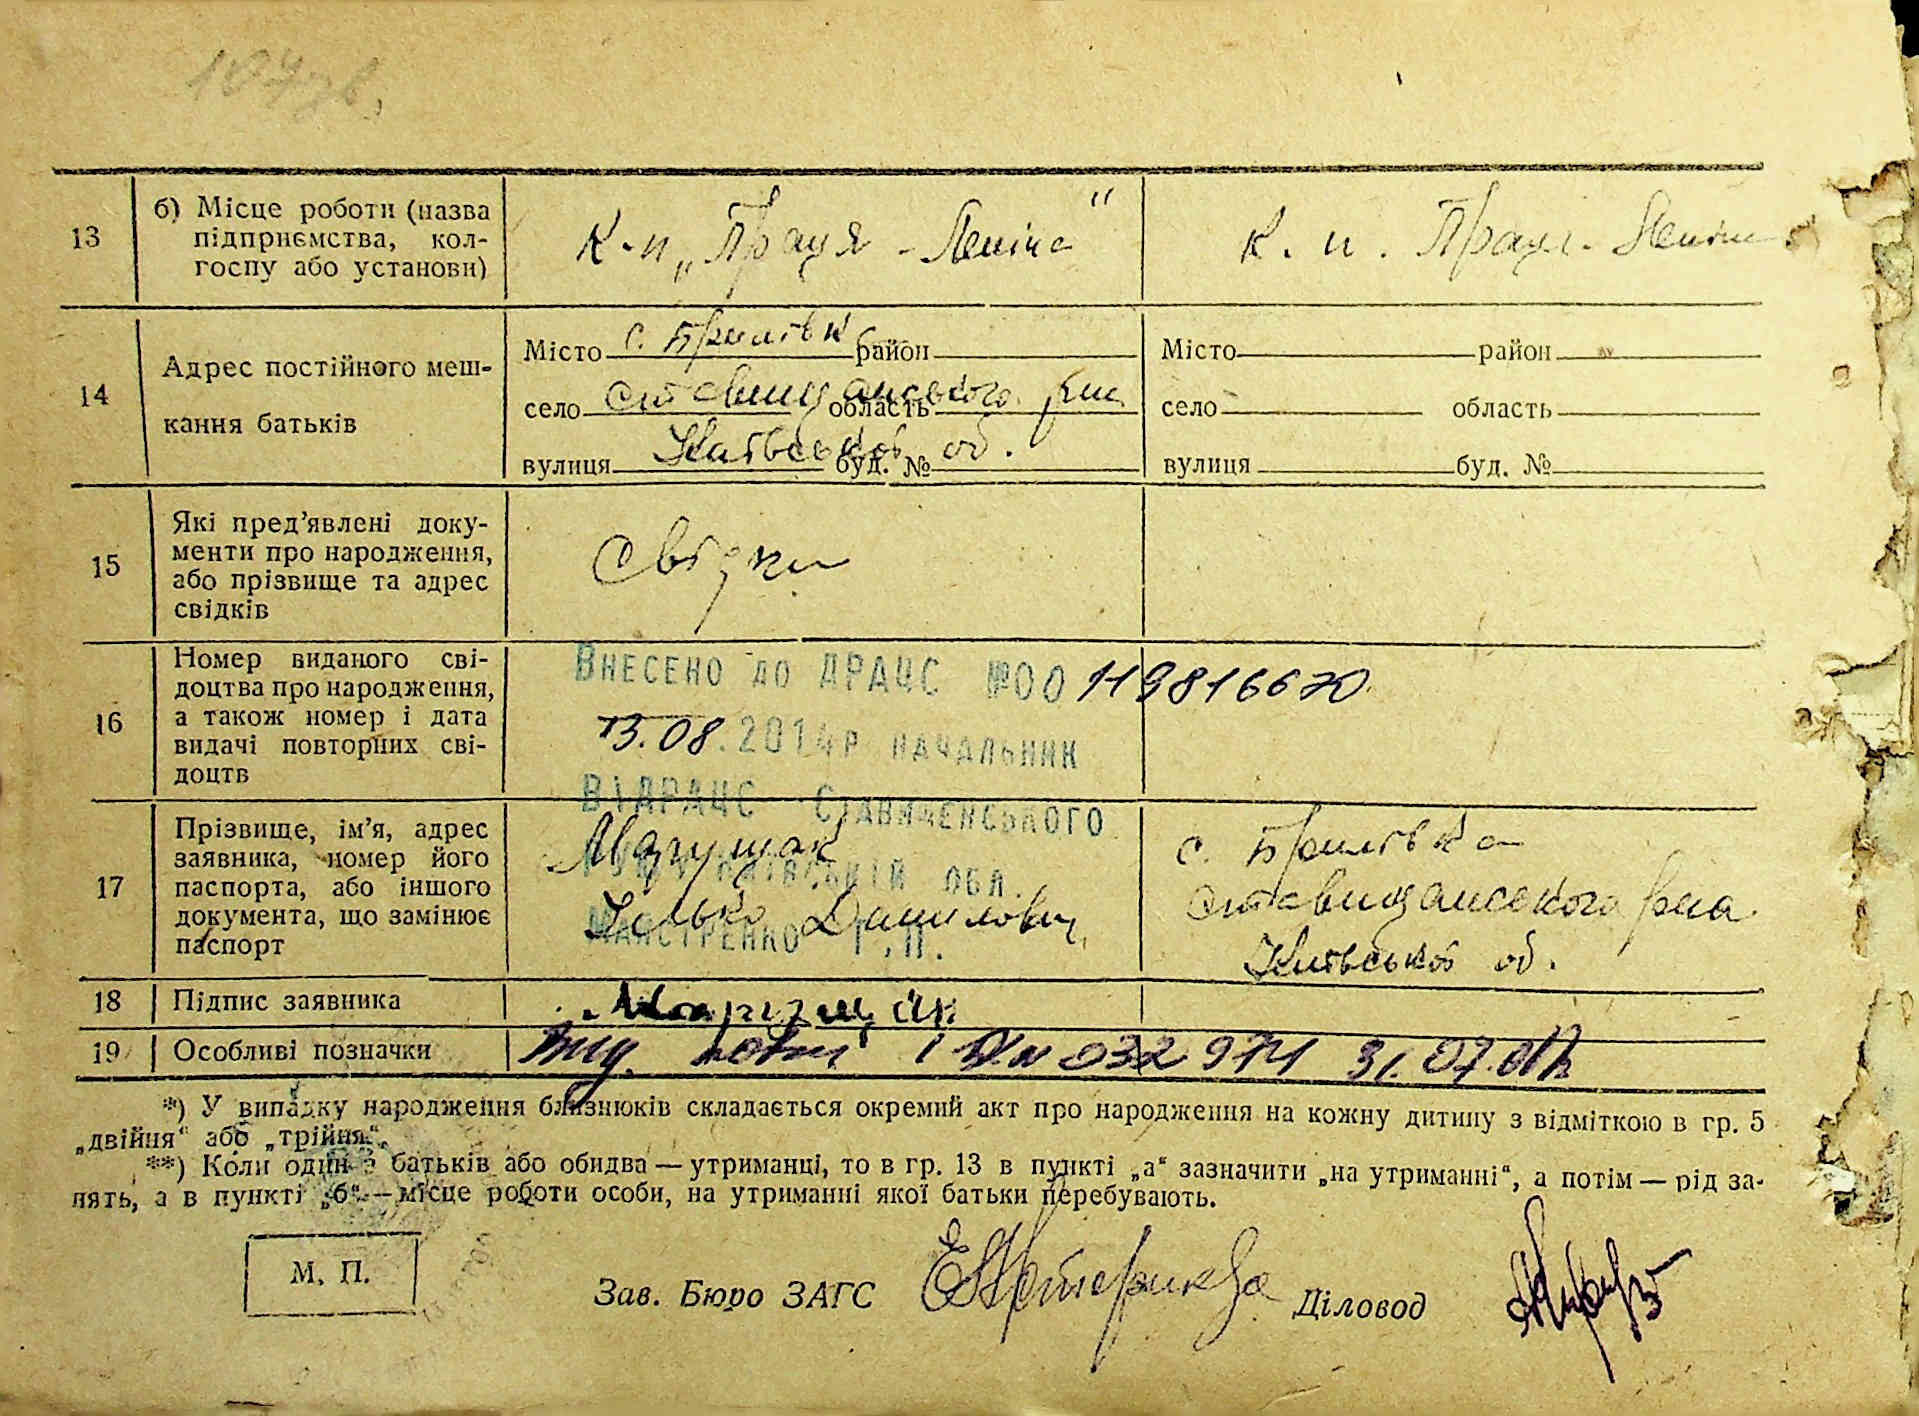 107 зв.
13
б) Місце роботи (назва
підприємства, кол-
госпу або установи)
к-п „Праця - Леніна"
к. п. Праця - Леніна
14
Адрес постійного меш-
кання батьків
Місто с. Брилівка район
село Ставищанського область р-на
вулиця Київської буд. № об.
Місто район
село область
вулиця буд. №
15
Які пред'явлені доку-
менти про народження,
або прізвище та адрес
свідків
Свідки
16
Номер виданого сві-
доцтва про народження,
а також номер і дата
видачі повторних сві-
доцтв
Внесено до ДРАЦС №00 119816670
13.08.2014р начальник
ВіДРАЦС Ставищенського
РУЮ у Київській обл.
Майстренко Г.П.
17
Прізвище, ім'я, адрес
заявника, номер його
паспорта, або іншого
документа, що замінює
паспорт
Марущак
Данилович
с. Брилівка
Ставищанського р-на
Київської об.
18
Підпис заявника
Марущак
19
Особливі позначки
Вид. повт. 032974 31.07.
*) У випадку народження близнюків складається окремий акт про народження на кожну дитину з відміткою в гр. 5
„двійня" або „трійня".
**) Коли один з батьків або обидва — утриманці, то в гр. 13 в пункті „а" зазначити „на утриманні", а потім — рід за-
нять, а в пункті „б" — місце роботи особи, на утриманні якої батьки перебувають.
М. П.
Зав. Бюро ЗАГС
Діловод